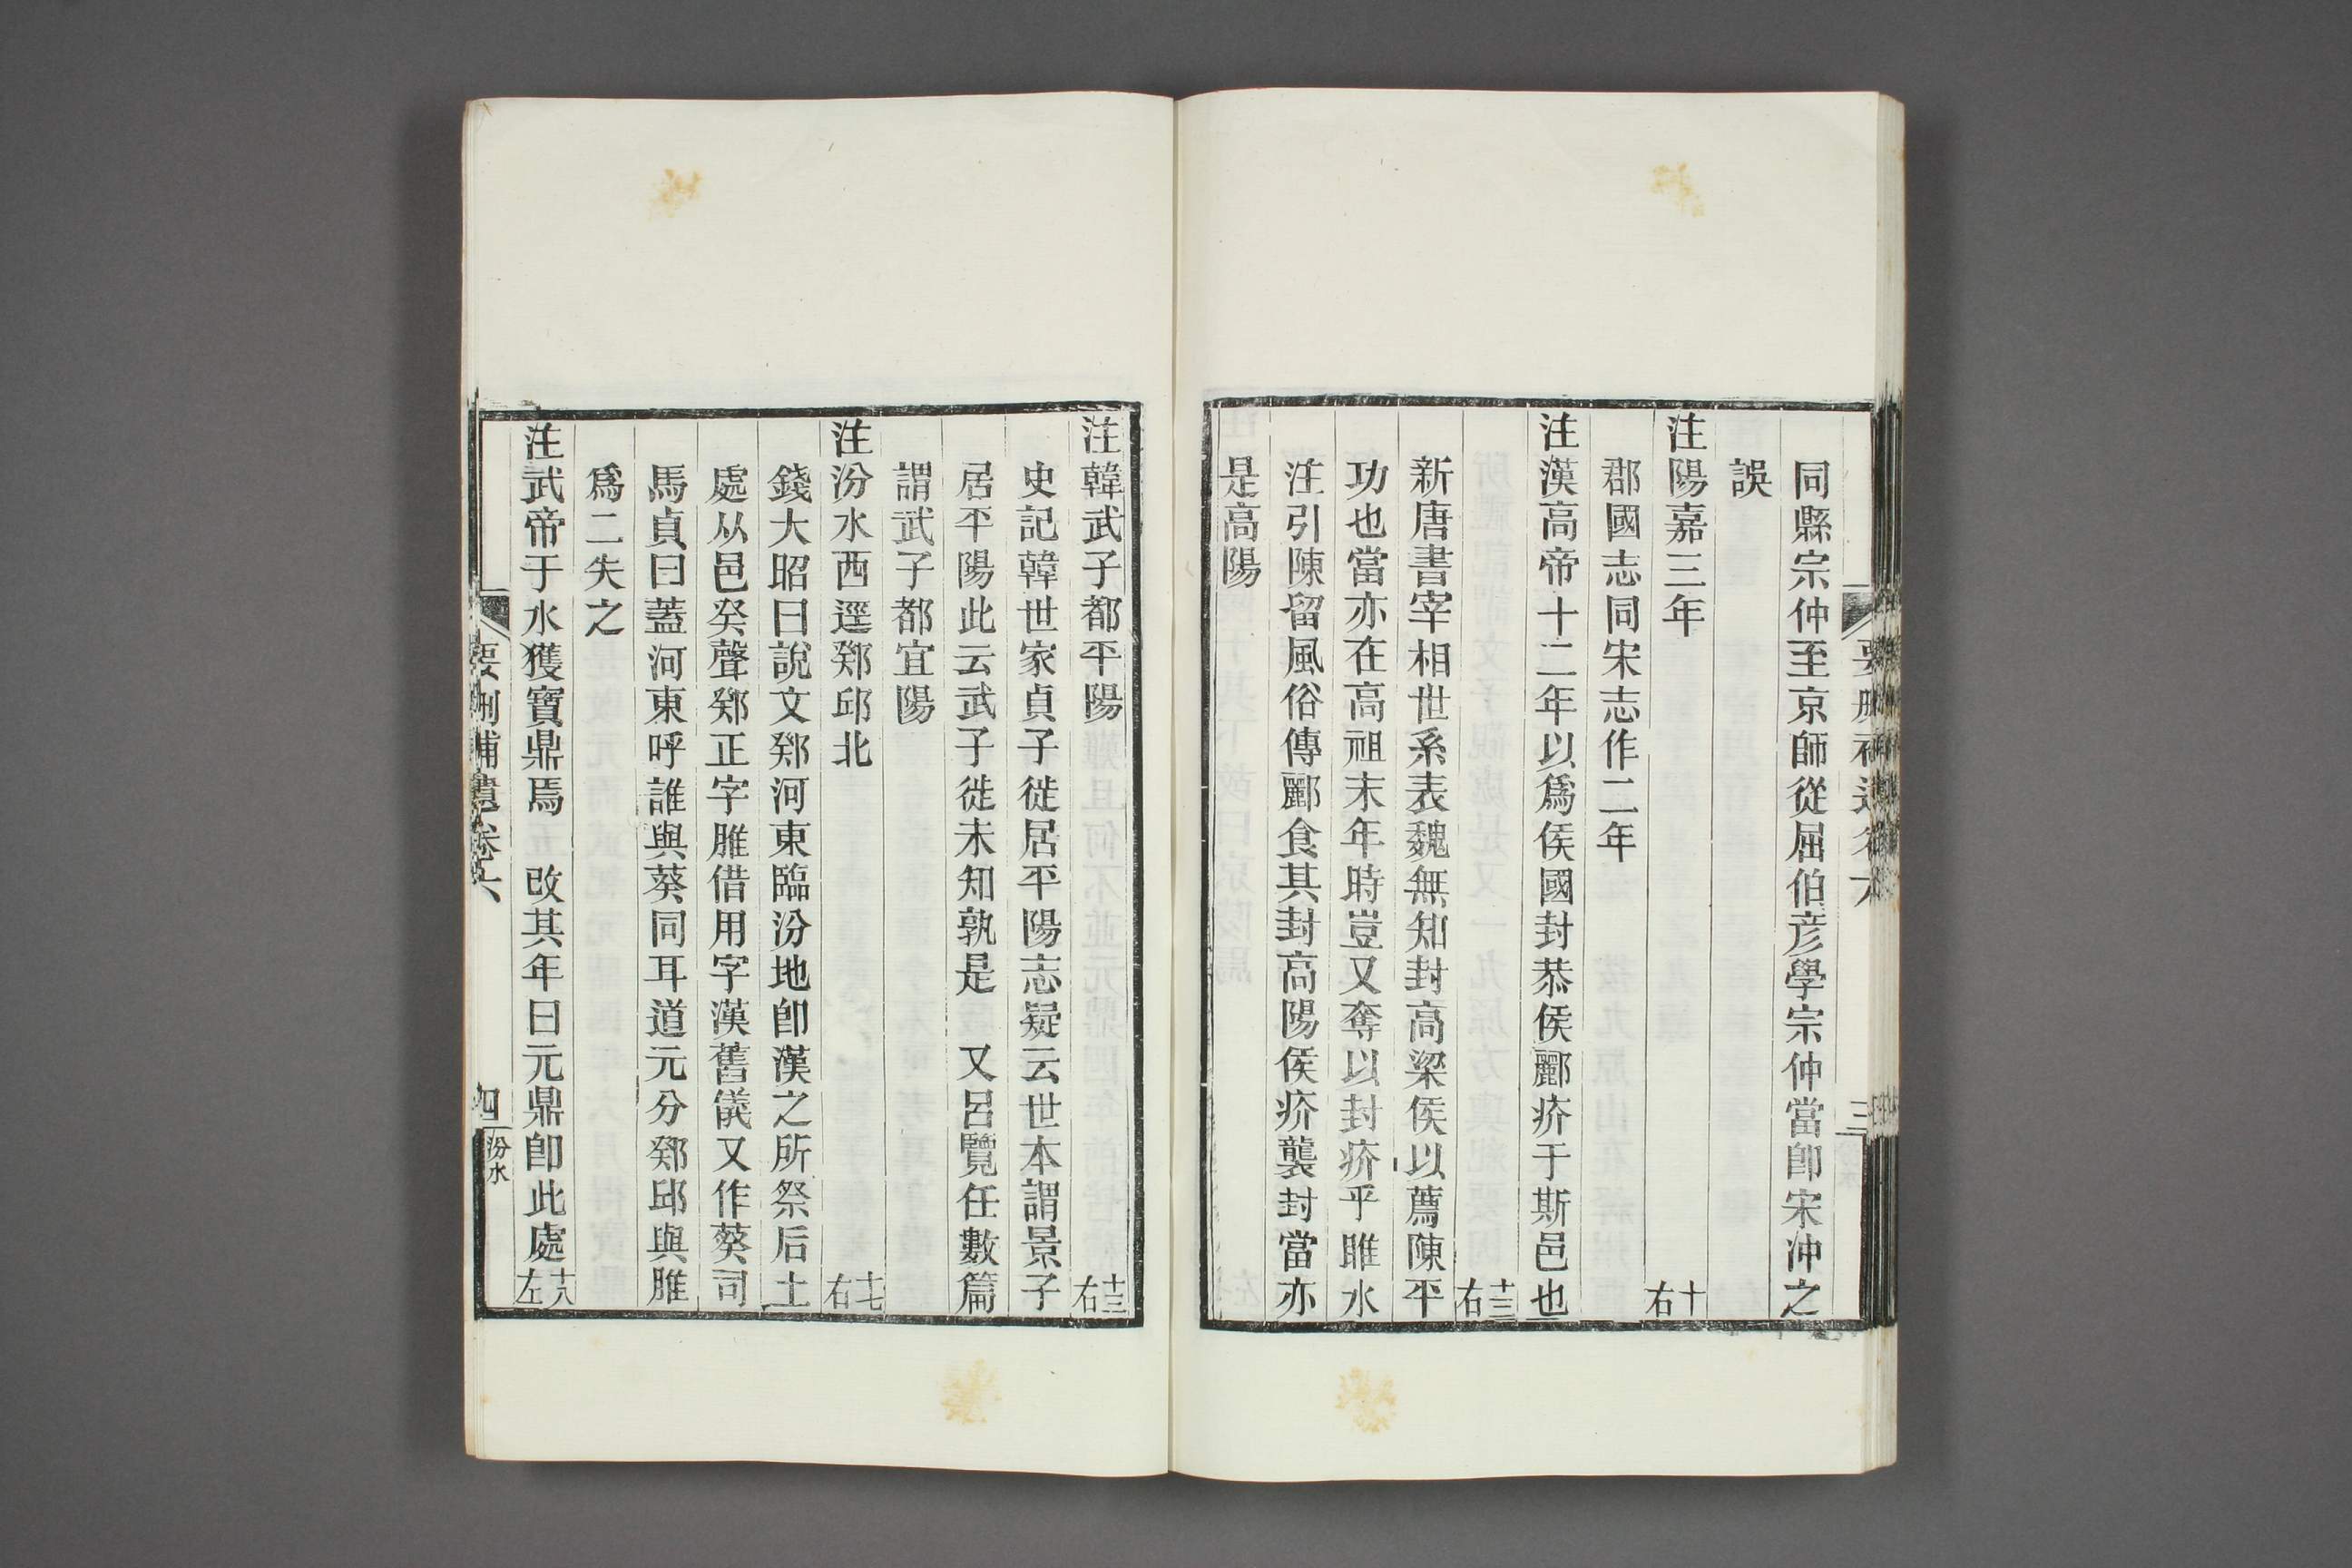 同縣宗仲至京師從屈伯彦學宗仲當卽宋沖之
誤
注陽嘉三年 十右
郡國志同宋志作二年
注漢高帝十二年以爲侯國封恭侯酈疥于斯邑也
十三右
新唐書宰相世系表魏無知封高梁侯以薦陳平
功也當亦在高祖末年時豈又奪以封疥乎睢水
注引陳留風俗傳酈食其封高陽侯疥襲封當亦
是高陽
三
注韓武子都平陽 十三右
史記韓世家貞子徙居平陽志疑云世本謂景子
居平陽此云武子徙未知孰是 又呂覽任數篇
謂武子都宜陽
注汾水西逕鄈邱北 十七右
錢大昭曰說文鄈河東臨汾地卽漢之所祭后土
處从邑癸聲鄈正字脽借用字漢舊儀又作葵司
馬貞曰蓋河東呼誰與葵同耳道元分鄈邱與脽
爲二失之
注武帝于水獲寶鼎焉 改其年曰元鼎卽此處 十八左
要刪補遺卷六
四 汾水